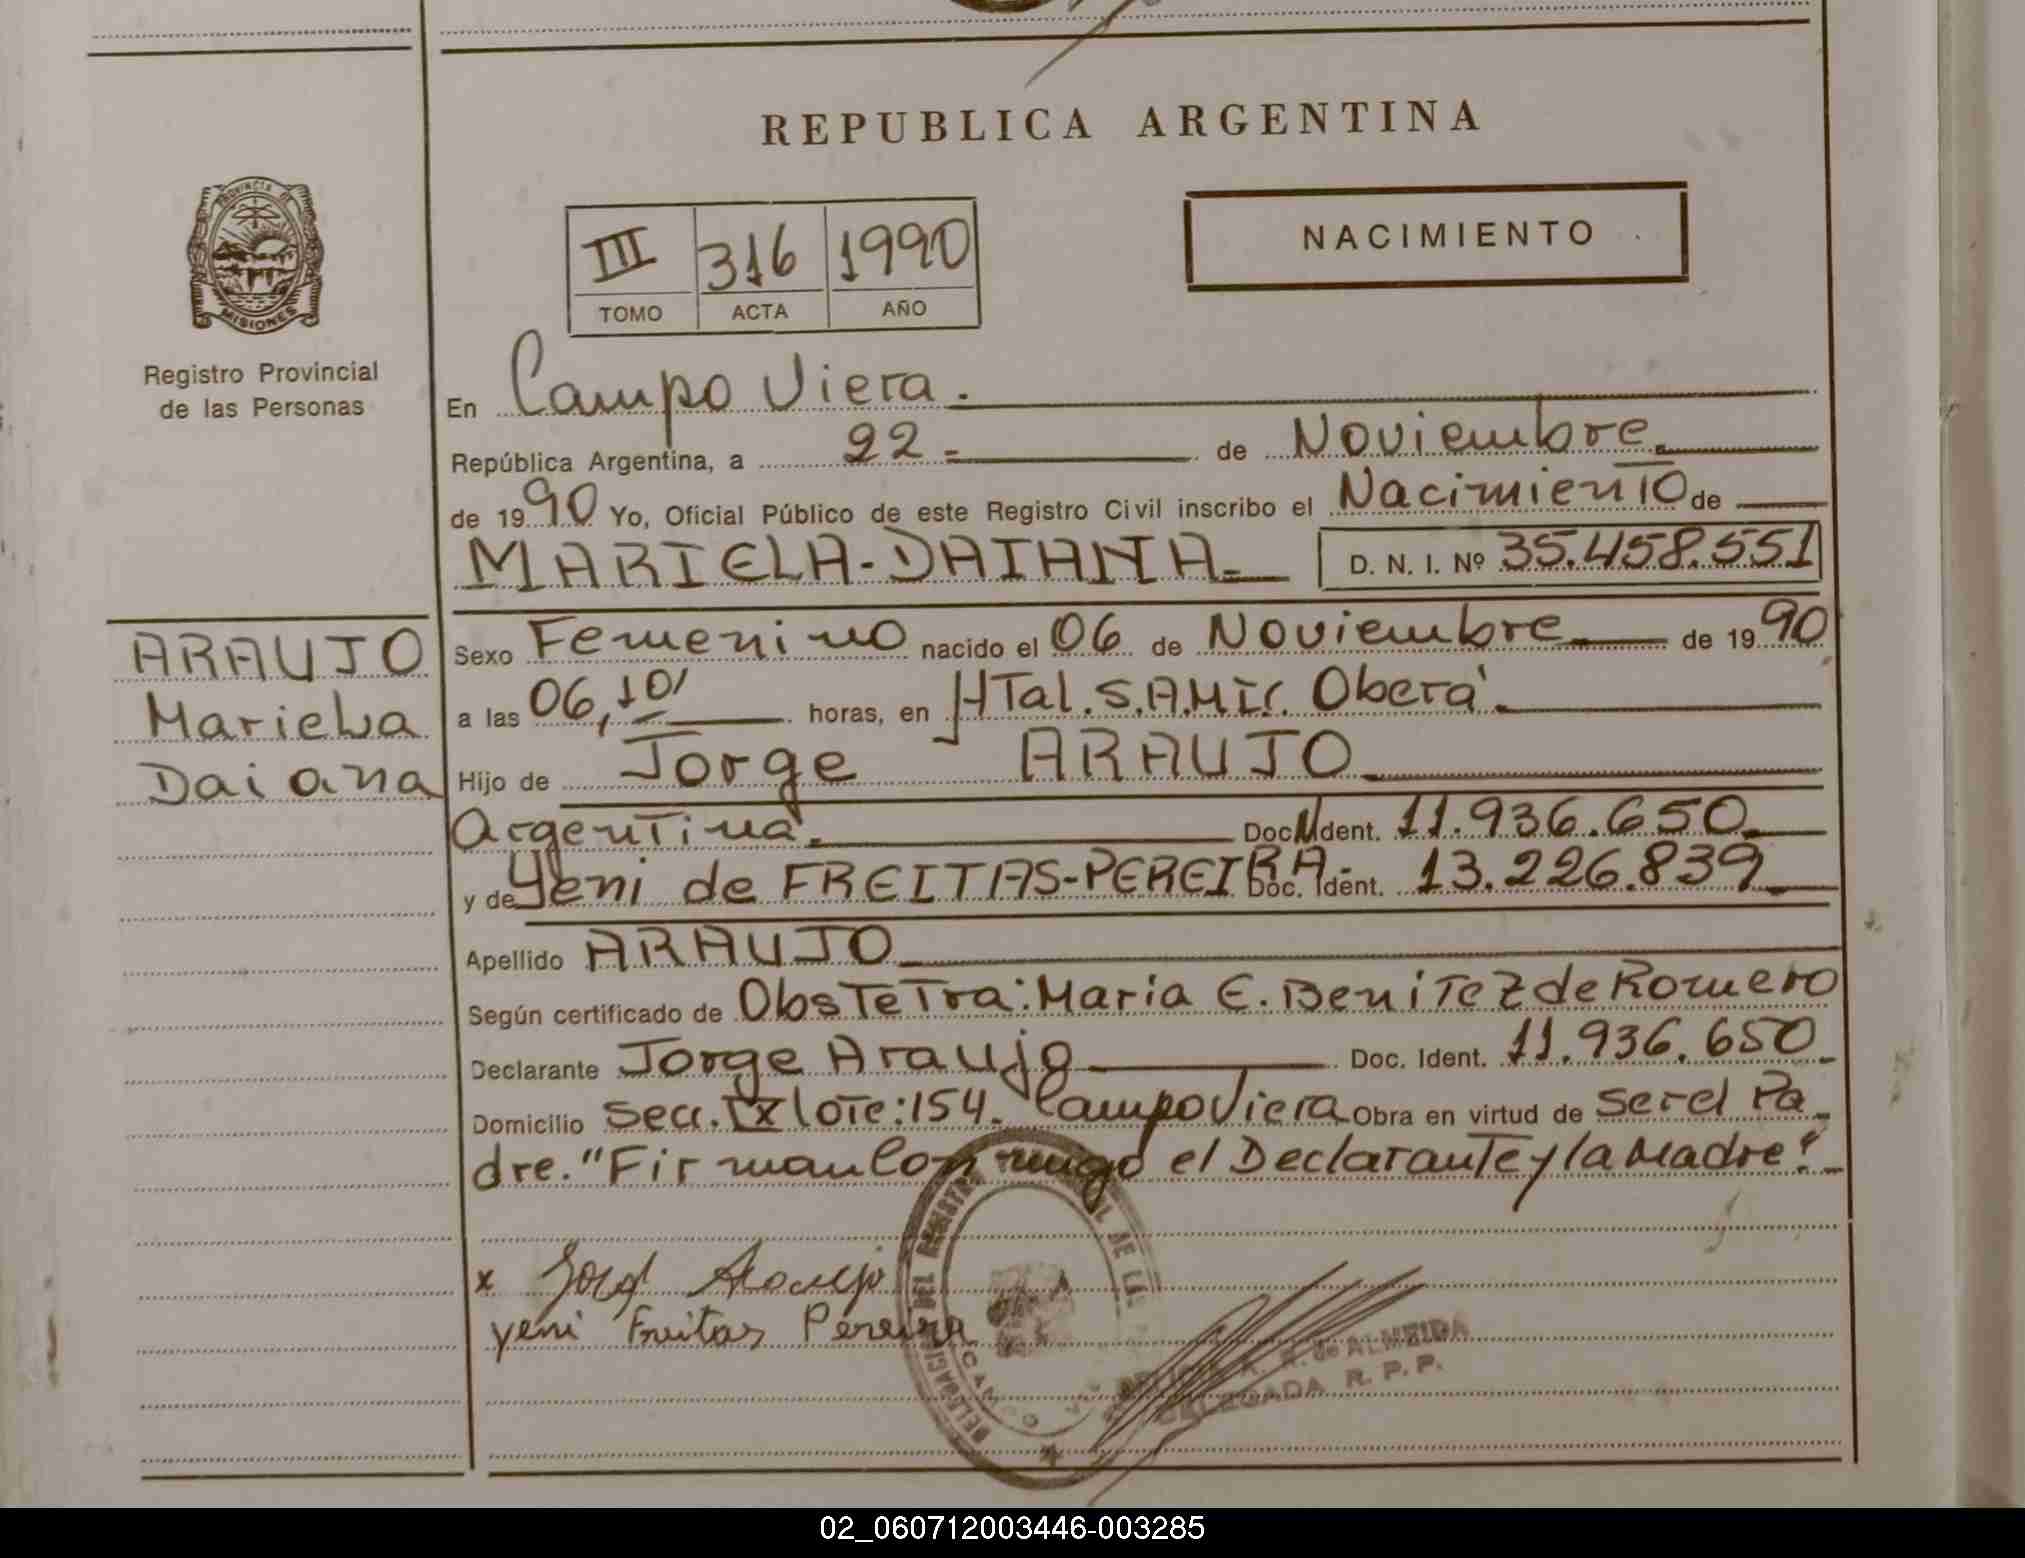 REPUBLICA ARGENTINA
PROVINCIA DE
MISIONES
Registro Provincial
de las Personas
III 316 1990
TOMO ACTA AÑO
NACIMIENTO
En Campo Viera.
República Argentina, a 22 = de Noviembre.
de 1990 Yo, Oficial Público de este Registro Civil inscribo el Nacimiento de
MARIELA-DAIANA D. N. I. Nº 35.458.551
ARAUJO
Mariela
Daiana
Sexo Femenino nacido el 06 de Noviembre de 1990
a las 06,10' horas, en HTal. S.A.M.I.C. Oberá.
Hijo de Jorge ARAUJO
Argentina. Doc. Ident. 11.936.650.
y de Yeni de FREITAS-PEREIRA- Doc. Ident. 13.226.839
Apellido ARAUJO
Según certificado de Obstetra: Maria E. Benitez de Romero
Declarante Jorge Araujo Doc. Ident. 11.936.650
Domicilio Secc. IX lote: 154. Campo Viera Obra en virtud de ser el Pa
dre. "Firman Conmigo el Declarante y la Madre".
x Araujo
yeni Freitas Pereira
DELEGACION DEL REGISTRO DE LAS
CAMPO
de ALMEIDA
DELEGADA R. P. P.
02_060712003446-003285